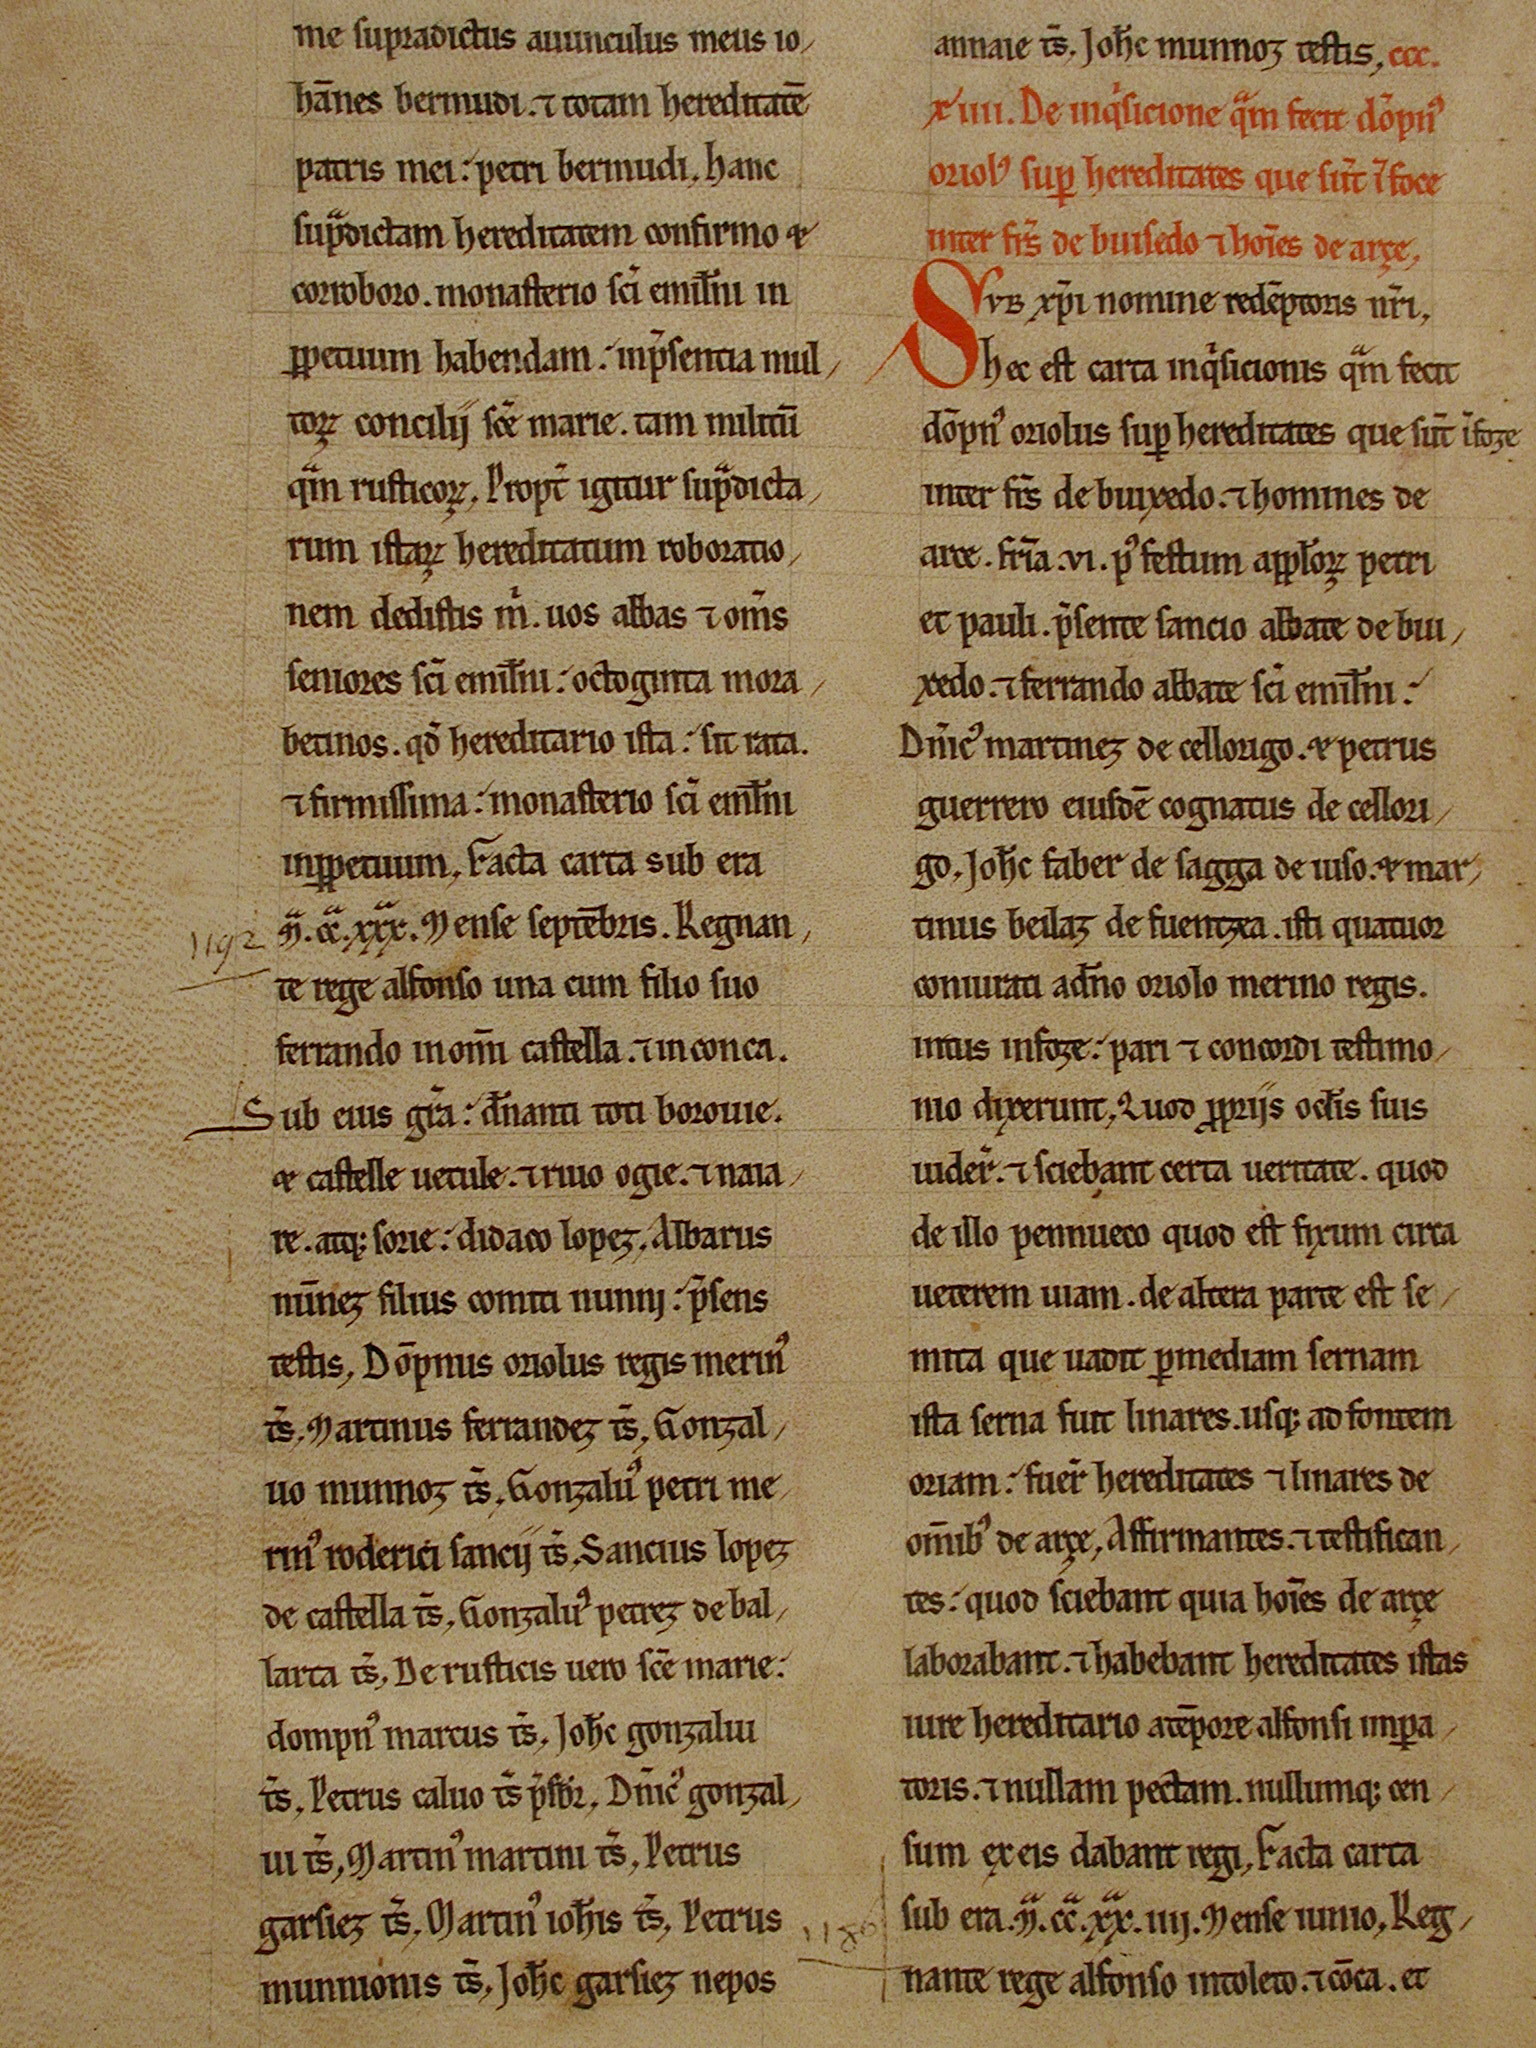 me supradictus auunculus meus io
hãnes bermudi. ⁊ totam hereditatẽ
patris mei: petri bermudi, hanc
sup̃dictam hereditatem confirmo &
corroboro. monasterio sc̃i emil̃ni in
ꝑpetuum habendam: inp̃sentia mul
toꝝ concilij sc̃e marie. tam militũ
q̃m rusticoꝝ, Propt̃ igitur sup̃dicta
rum istaꝝ hereditatum roboratio
nem dedistis m̃. uos abbas ⁊ om̃s
seniores sc̃i emil̃ni: octoginta mora
betinos. qđ hereditario ista: sit rata.
⁊ firmissima: monasterio sc̃i emil̃ni
inꝑpetuum, Facta carta sub era
1192
M̃. cc̃. xxx̃. Mense septẽbris. Regnan
te rege alfonso una cum filio suo
ferrando in om̃i castella. ⁊ in conca.
Sub eius gr̃a: dñanti toti borouie.
& castelle uetule. ⁊ riuo ogie. ⁊ naia
re. atq; sorie: didaco lopez, Albarus
nũnez filius comiti nunnij: p̃sens
testis, Dõpnus oriolus regis merinꝰ
ts̃, Martinus ferrandez ts̃, Gonzal
uo munnoz ts̃, Gonzaluꝰ petri me
rinꝰ roderici sancij ts̃, Sancius lopez
de castella ts̃, Gonzaluꝰ petrez de bal
larta ts̃, De rusticis uero sc̃e marie:
dompnꝰ marcus ts̃, Joh̃c gonzalui
ts̃, Petrus caluo ts̃ p̃sbr̃, Dñicꝰ gonzal
ui ts̃, Martinꝰ martini ts̃, Petrus
garsiez ts̃, Martinꝰ ioh̃is ts̃, Petrus
munnionis ts̃, Joh̃c garsiez nepos
annaie ts̃, Joh̃c munnoz testis, ccc.
xiiii. De inq̃sicione q̃m fecit dõpnꝰ
oriolꝰ suꝑ hereditates que sũt ĩ foce
inter fr̃s de buisedo ⁊ hoĩes de arçe,
SVB xp̃i nomine redẽptoris nr̃i,
hec est carta inq̃sicionis q̃m fecit
dõpnꝰ oriolus suꝑ hereditates que sũt ĩ foze
inter fr̃s de buixedo. ⁊ homines de
arce. fr̃ia. vi. pꝰ festum appl̃oꝝ petri
et pauli. p̃sente sancio abbate de bui
xedo. ⁊ ferrando abbate sc̃i emil̃ni:
Dñicꝰ martinez de cellorigo. & petrus
guerrero eiusdẽ cognatus de cellori
go, Joh̃c faber de sagga de iuso. & mar
tinus beilaz de fuentzea. isti quatuor
coniurati a dñno oriolo merino regis.
intus in foze: pari ⁊ concordi testimo
nio dixerunt, Quod ꝓprijs oc̃lis suis
uider̃. ⁊ sciebant certa ueritate. quod
de illo pennueco quod est fixum circa
ueterem uiam. de altera parte est se
mita que uadit ꝑ mediam sernam
ista serna fuit linares. usq; ad fontem
oriam: fuer̃ hereditates ⁊ linares de
om̃ibꝰ de arçe, Affirmantes. ⁊ testifican
tes: quod sciebant quia hoĩes de arçe
laborabant. ⁊ habebant hereditates istas
iure hereditario a tẽpore alfonsi imꝑa
toris. ⁊ nullam pectam. nullumq; cen
sum ex eis dabant regi, Facta carta
sub era. M̃. cc̃. xx̃. iiij. Mense iunio, Reg
1186
nante rege alfonso in toleto. ⁊ cõca. et